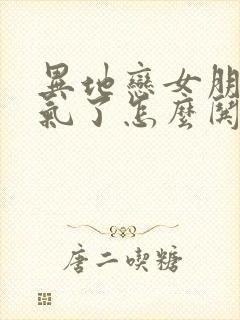 異地戀女朋
氣了怎麼鬨
唐二喫糖